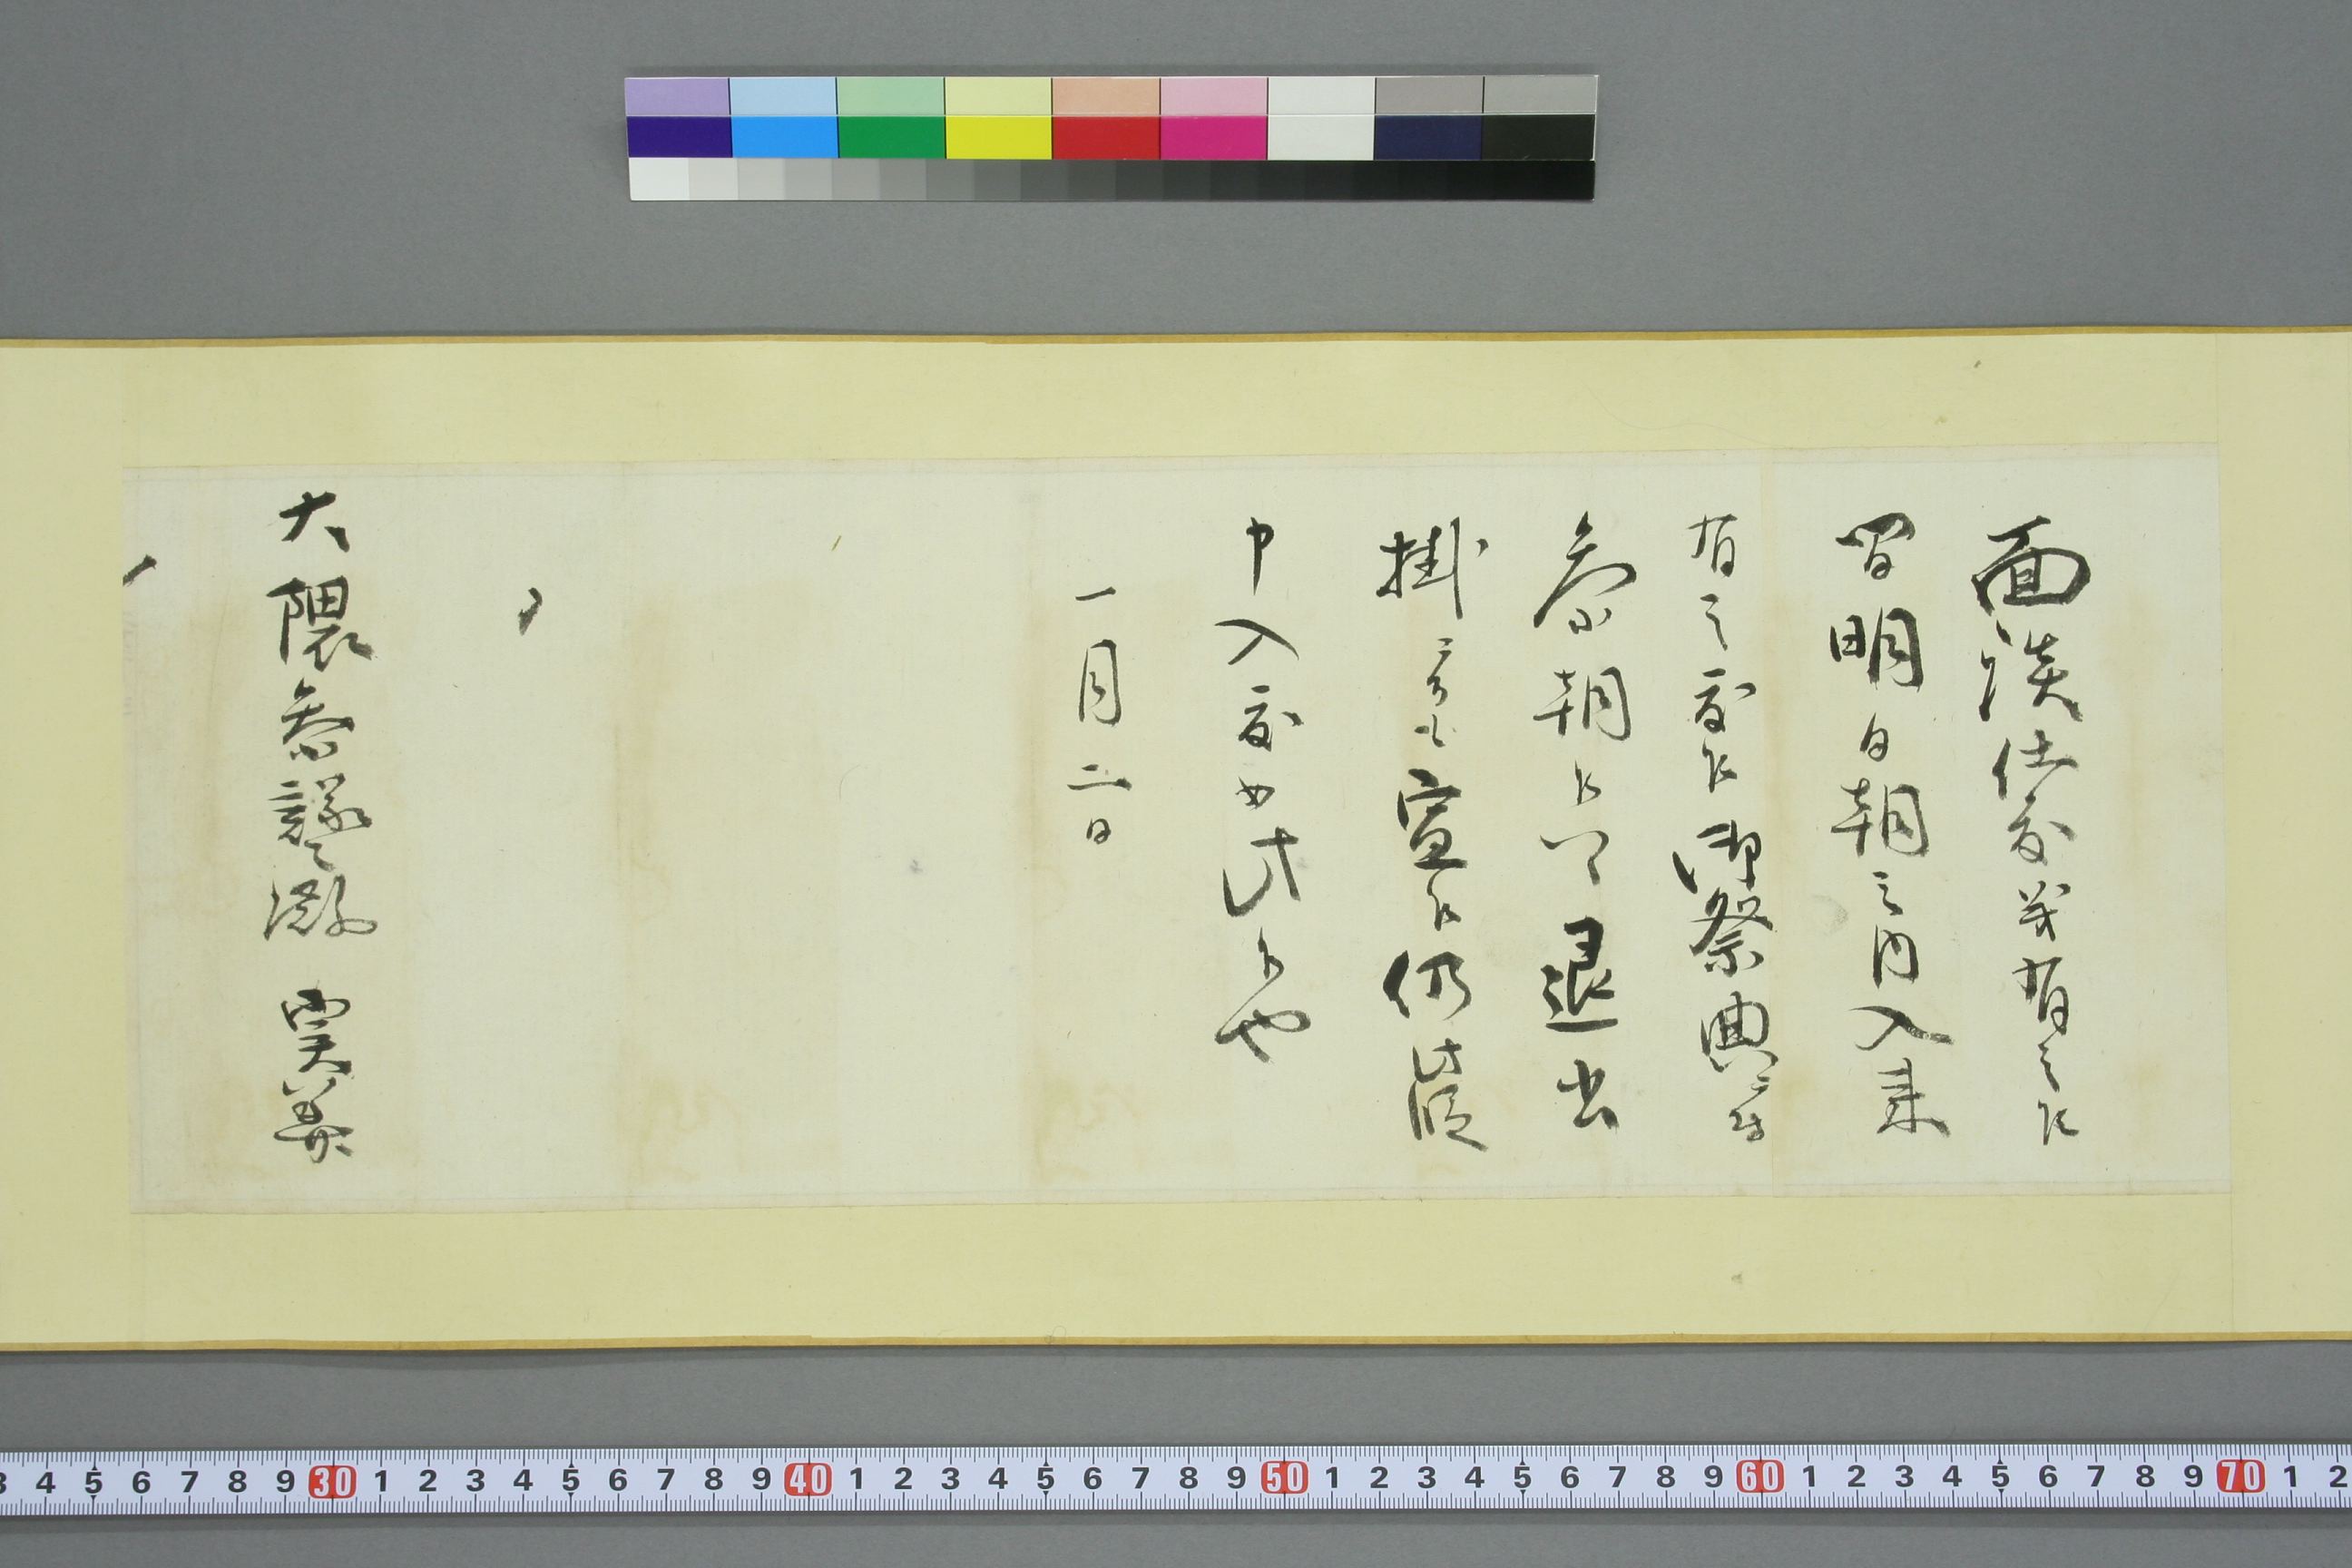 面談仕度義有之候
間明日朝之内入来
有之度候御祭典ニ付
参朝候ハヽ退出
掛ニ而も宜候仍此段
申入度如此候也
一月二日
大隈参議殿 実美
3 4 5 6 7 8 9 30 1 2 3 4 5 6 7 8 9 40 1 2 3 4 5 6 7 8 9 50 1 2 3 4 5 6 7 8 9 60 1 2 3 4 5 6 7 8 9 70 1 2